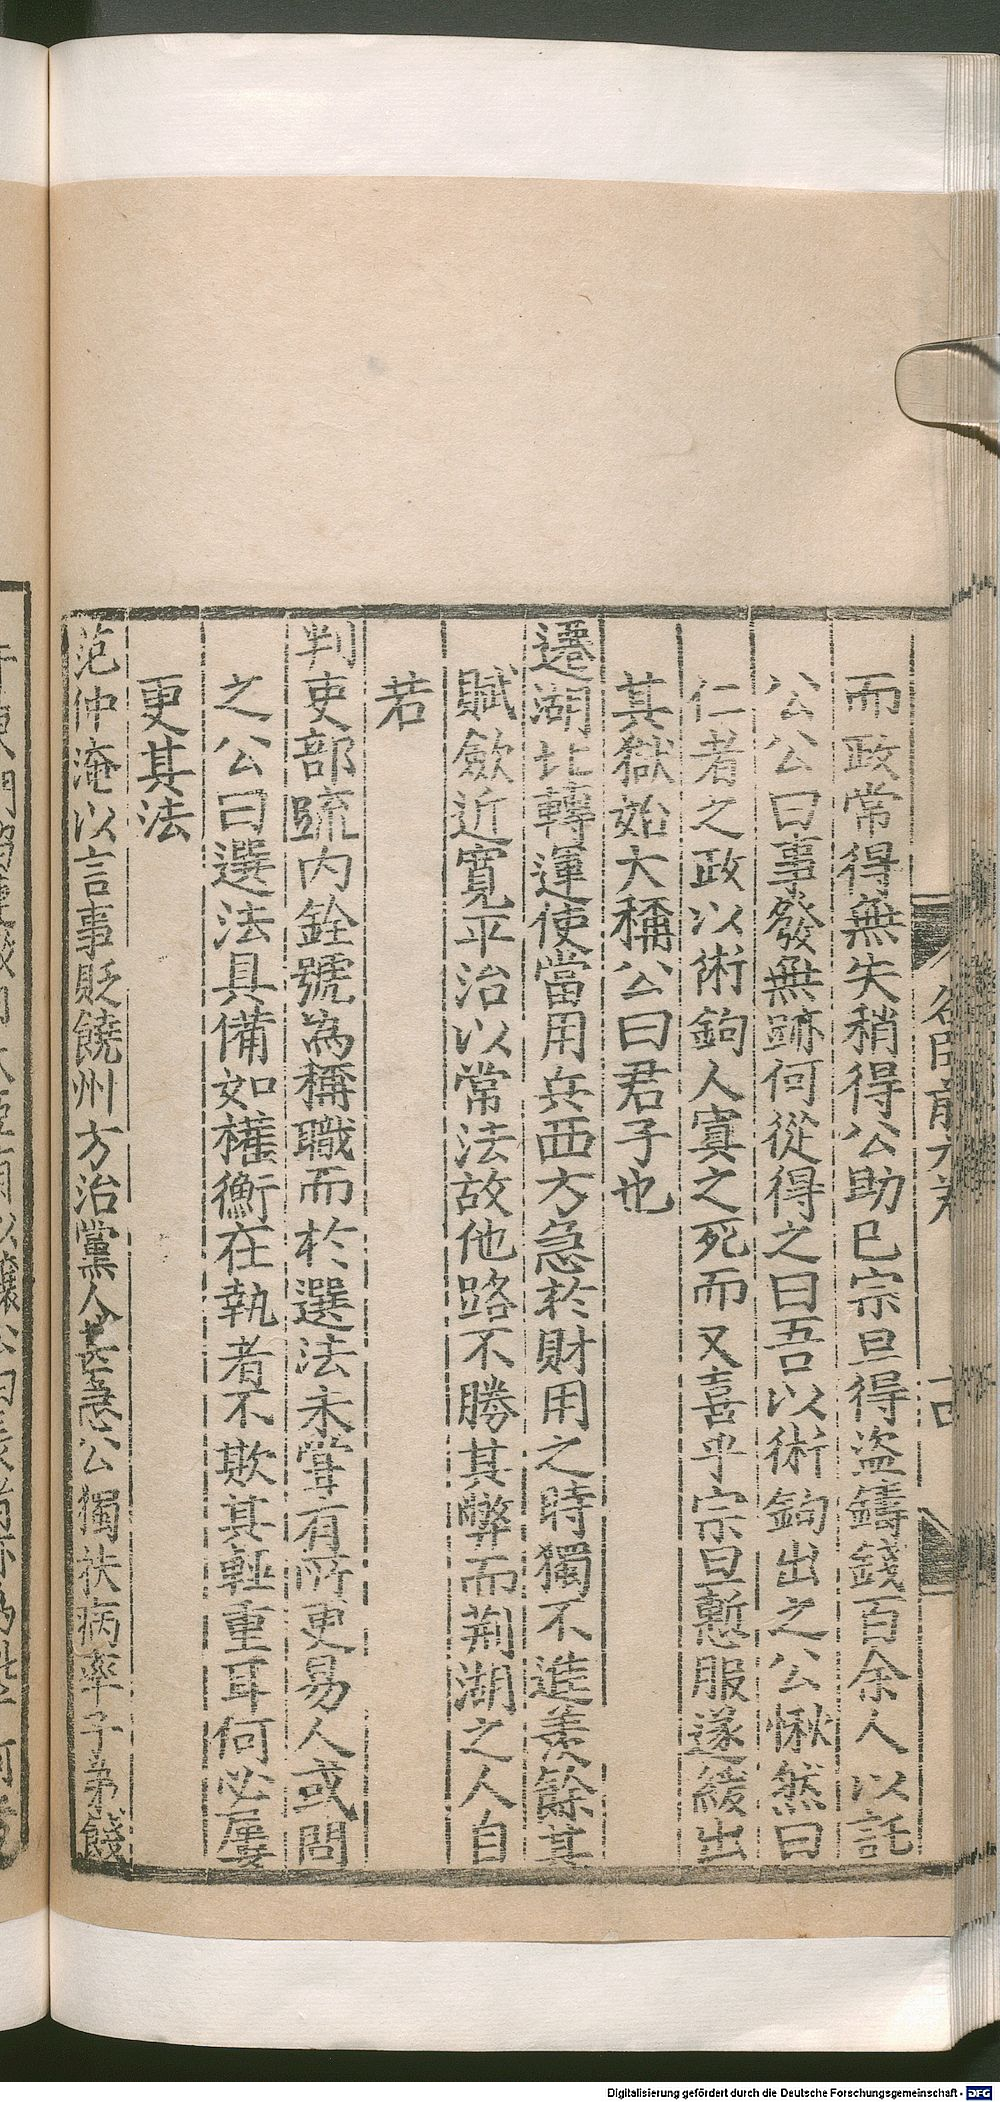 而政常得無失稍得公助巳宗旦得盜鑄錢百余人以託
公公曰事發無跡何從得之曰吾以術鉤出之公愀然曰
仁者之政以術鉤人寘之死而又喜乎宗旦慙服遂緩出
其獄始大稱公曰君子也
遷湖北轉運使當用兵西方急於財用之時獨不進羨餘其
賦斂近寬平治以常法故他路不勝其弊而荊湖之人自
若
判吏部流內銓號為稱職而於選法未甞有所更易人或問
之公曰選法具備如權衡在執者不欺其輕重耳何必屢
更其法
范仲淹以言事貶饒州方治黨人甚急公獨扶病率子弟餞
Digitalisierung gefördert durch die Deutsche Forschungsgemeinschaft - DFG